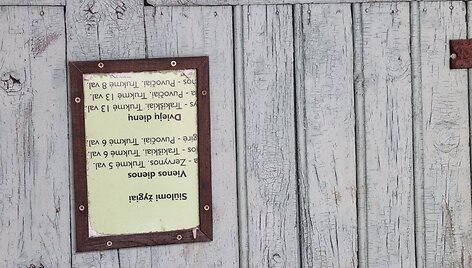 Siūlomi žygiai
Vienos dienos
a - Zervynos. Trukmė 5 val.
os - Trakiškiai. Trukmė 6 val.
girė - Puvočiai. Trukmė 6 val.
Dviejų dienų
ys - Trakiškiai. Trukmė 13 val.
a - Puvočiai. Trukmė 13 val.
nos - Puvočiai. Trukmė 8 val.